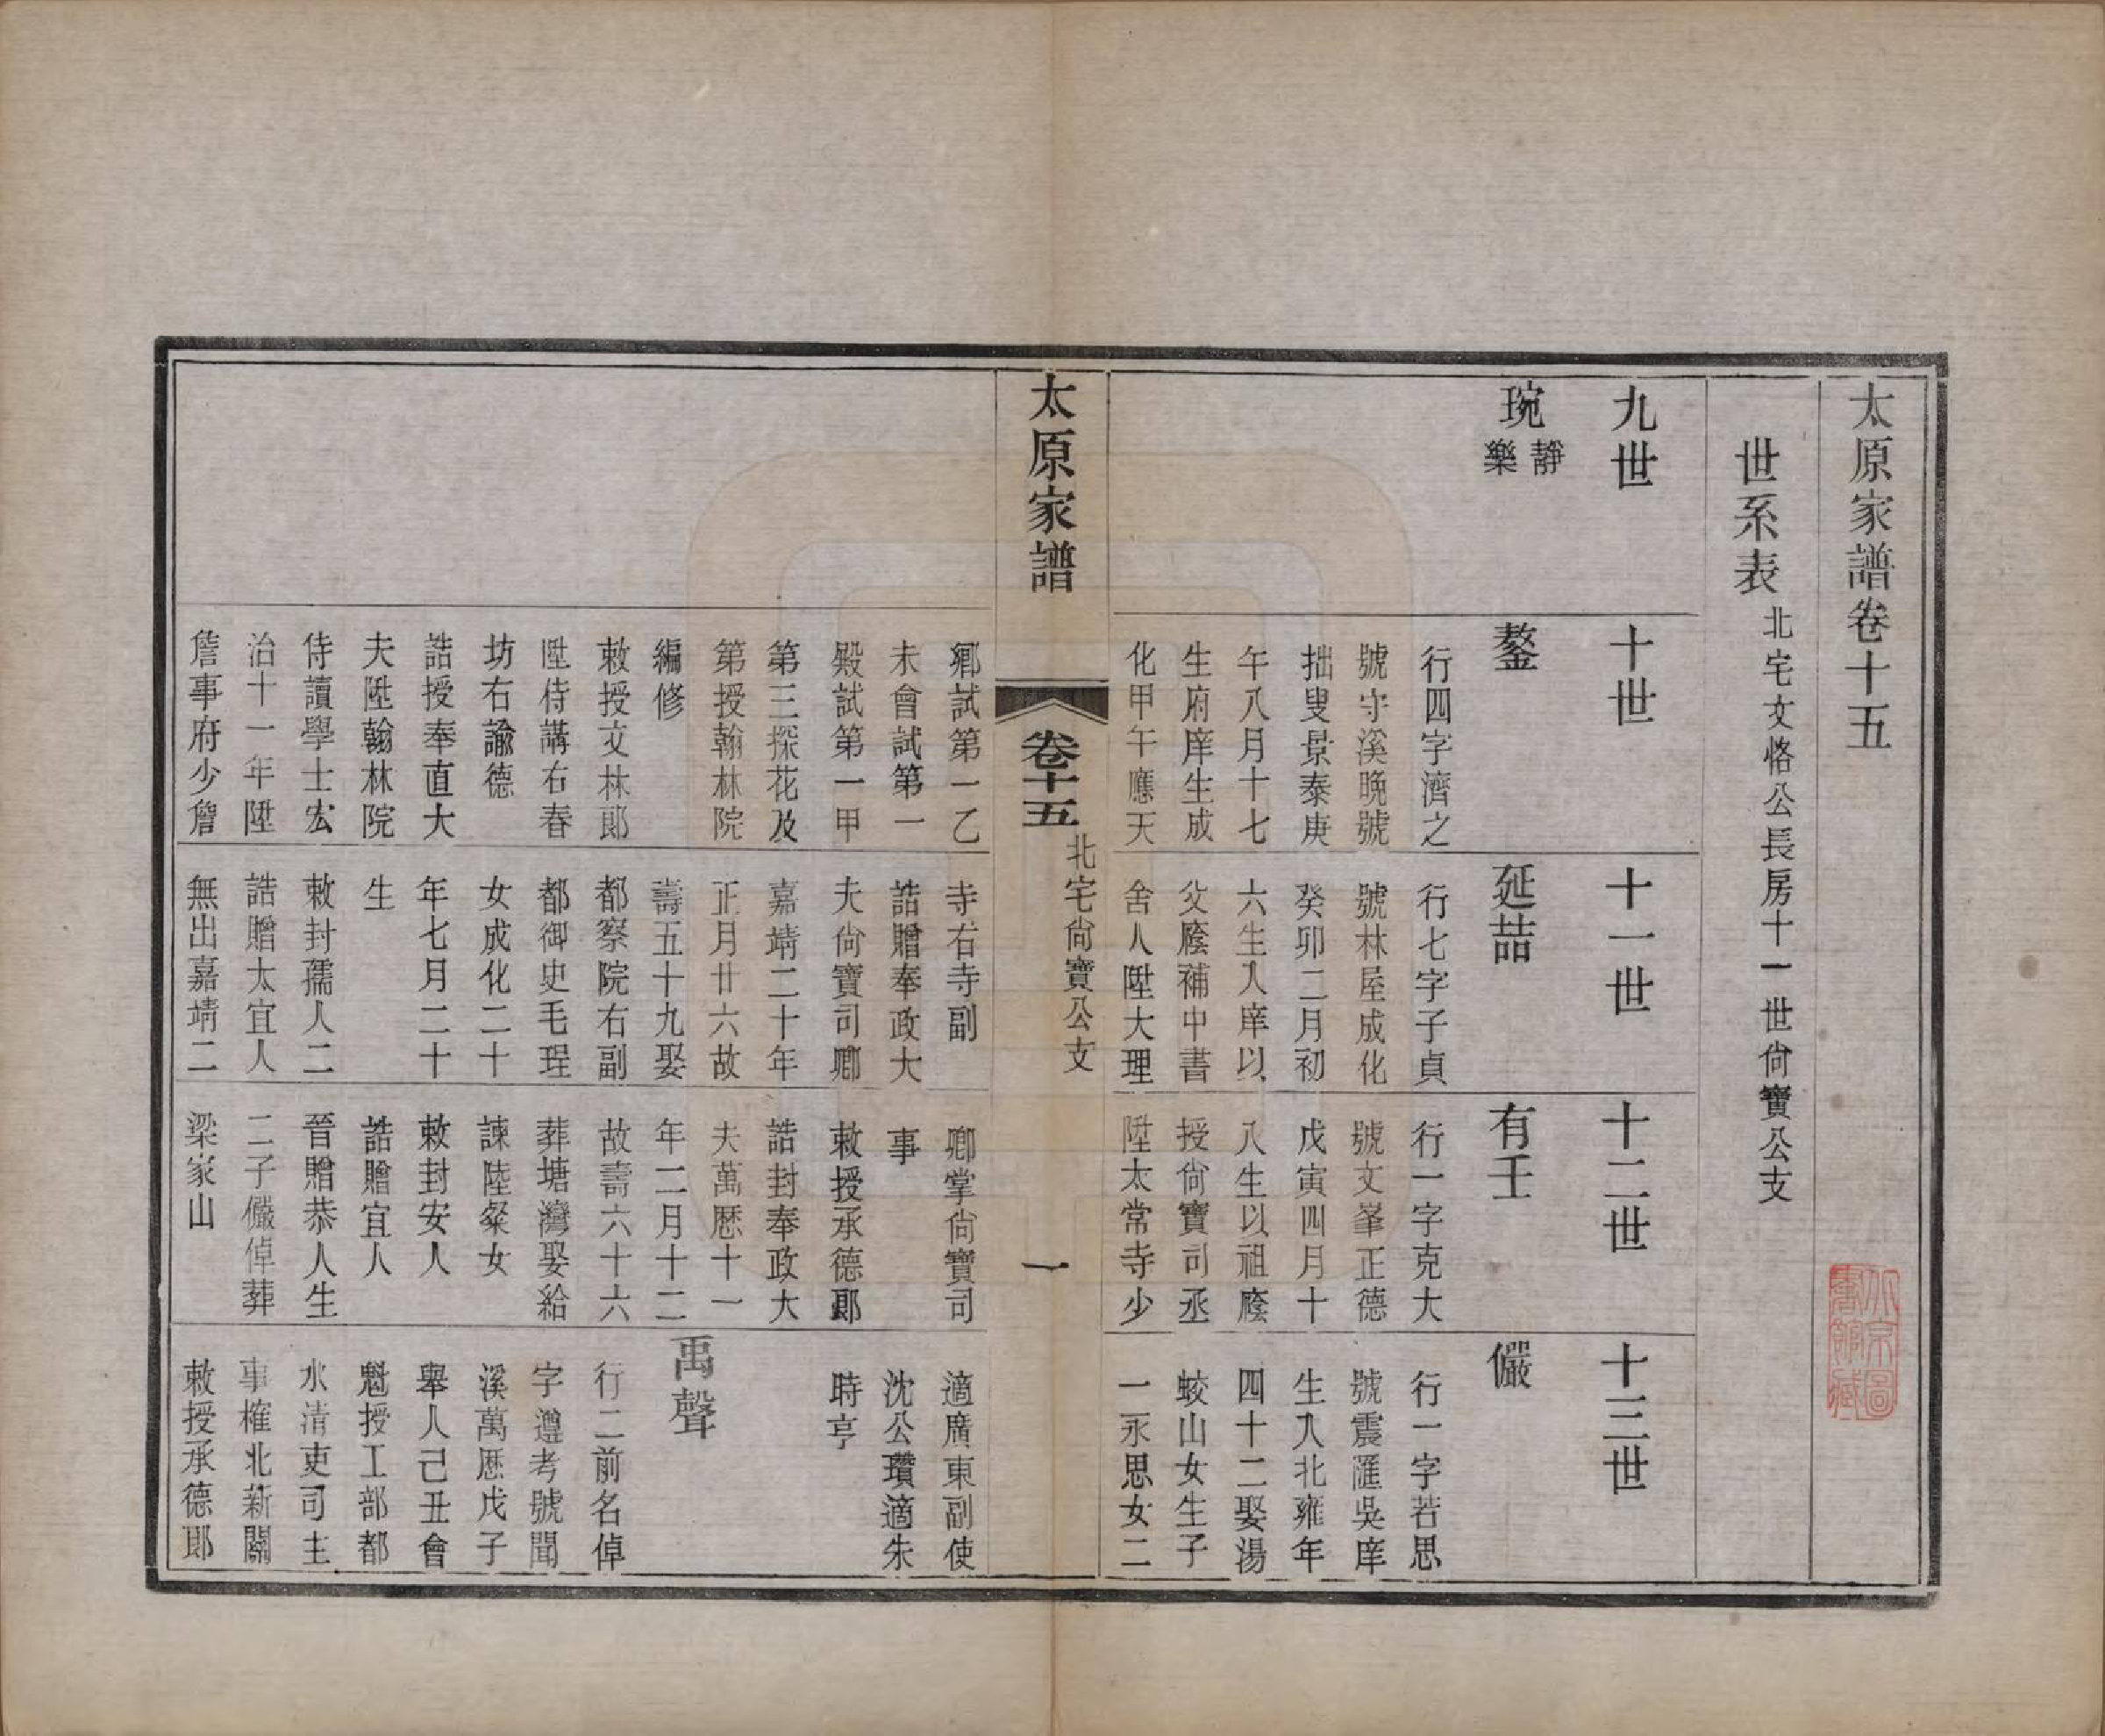 太原家譜卷十五
世系表
北宅文恪公長房十一世尙寶公支
九世
琬
靜
樂
十世
鏊
行四字濟之
號守溪晚號
拙叟景泰庚
午八月十七
生府庠生成
化甲午應天
鄕試第一乙
未會試第一
殿試第一甲
第三探花及
第授翰林院
編修
敕授文林郎
陞侍講右春
坊右諭德
誥授奉直大
夫陞翰林院
侍讀學士宏
治十一年陞
詹事府少詹
十一世
延喆
行七字子貞
號林屋成化
癸卯二月初
六生入庠以
父廕補中書
舍人陞大理
寺右寺副
誥贈奉政大
夫尙寶司卿
嘉靖二十年
正月廿六故
壽五十九娶
都察院右副
都御史毛珵
女成化二十
年七月二十
生
敕封孺人二
誥贈太宜人
無出嘉靖二
十二世
有壬
行一字克大
號文峯正德
戊寅四月十
八生以祖廕
授尙寶司丞
陞太常寺少
卿掌尙寶司
事
敕授承德郎
誥封奉政大
夫萬厯十一
年二月十二
故壽六十六
葬塘灣娶給
諫陸粲女
敕封安人
誥贈宜人
晉贈恭人生
二子儼倬葬
梁家山
十三世
儼
行一字若思
號震匯吳庠
生入北雍年
四十二娶湯
蛟山女生子
一永思女二
適廣東副使
沈公瓚適朱
時亨
禹聲
行二前名倬
字遵考號聞
溪萬厯戊子
舉人己丑會
魁授工部都
水清吏司主
事榷北新關
敕授承德郎
太原家譜
卷十五
北宅尙寶公支
一